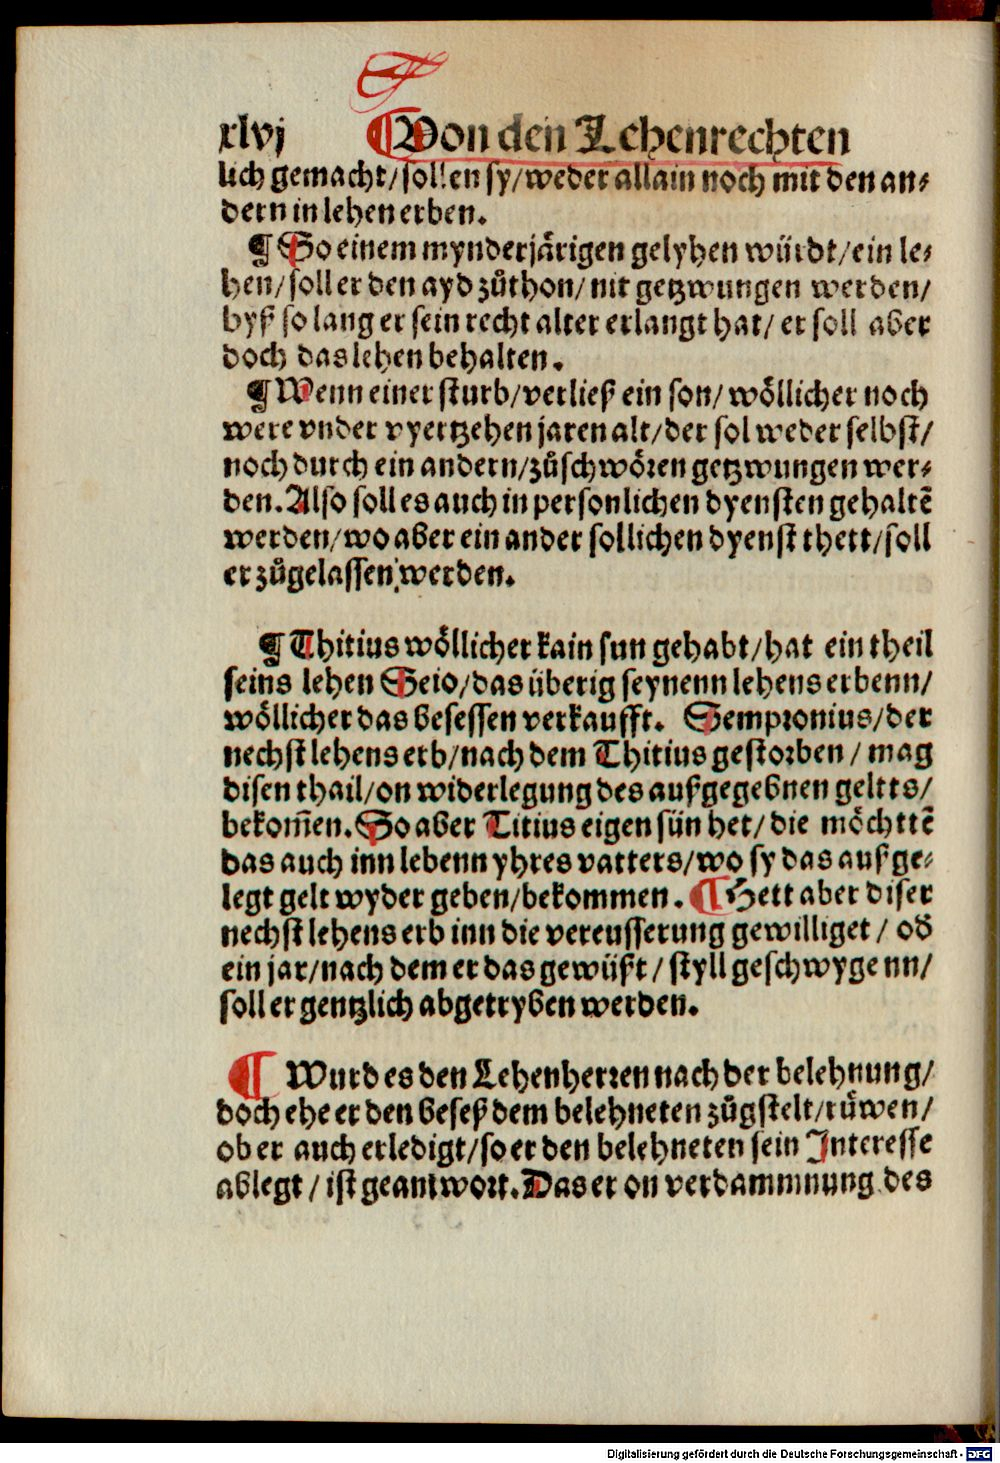 xlvj ¶Von den Lehenrechten
lich gemacht/sollen sy/weder allain noch mit den an⸗
dern in lehen erben.
¶ So einem mynderjårigen gelyhen würdt/ein le⸗
hen/soll er den ayd zůthon/nit getzwungen werden/
byß so lang er sein recht alter erlangt hat/ er soll aber
doch das lehen behalten.
¶ Wenn einer sturb/verließ ein son/ wöllicher noch
were vnder vyertzehen jaren alt/der sol weder selbst/
noch durch ein andern/zůschwören getzwungen wer⸗
den. Also soll es auch in personlichen dyensten gehaltē
werden/wo aber ein ander sollichen dyenst thett/soll
er zůgelassen werden.
¶ Thitius wöllicher kain sun gehabt/hat ein theil
seins lehen Seio/das überig seynenn lehens erbenn/
wöllicher das besessen verkaufft. Sempronius/der
nechst lehens erb/nach dem Thitius gestorben/ mag
disen thail/on widerlegung des außgegebnen geltts/
bekom̄en. So aber Titius eigen sün het/die möchttē
das auch inn lebenn yhres vatters/wo sy das auß ge⸗
legt gelt wyder geben/bekommen. ¶ Hett aber diser
nechst lehens erb inn die vereusserung gewilliget/ od
ein jar/nach dem er das gewüßt/ styll geschwygenn/
soll er gentzlich abgetryben werden.
¶ Wurd es den Lehenherren nach der belehnung/
doch ehe er den beseß dem belehneten zůgstelt/rüwen/
ob er auch erledigt/so er den belehneten sein Interesse
ablegt/ist geantwort. Das er on verdammnung des
Digitalisierung gefördert durch die Deutsche Forschungsgemeinschaft - DFG